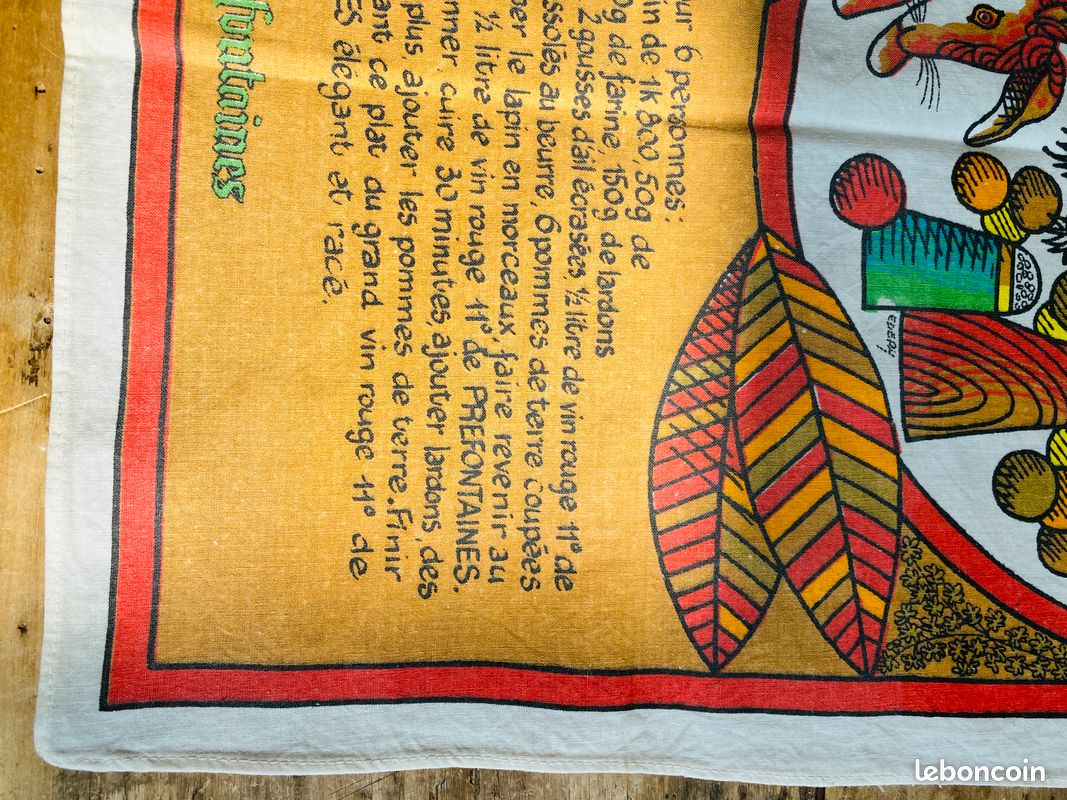 ur 6 personnes:
in de 1k800, 50g de
0g de farine, 150g de lardons
2 gousses d'ail écrasées, ½ litre de vin rouge 11° de
ssolés au beurre, 6 pommes de terre coupées
per le lapin en morceaux, faire revenir au
½ litre de vin rouge 11° de PREFONTAINES.
nner, cuire 30 minutes, ajouter lardons, des
plus, ajouter les pommes de terre. Finir
ant ce plat du grand vin rouge 11° de
ES élégant et racé.
fontaines
EDERY
leboncoin